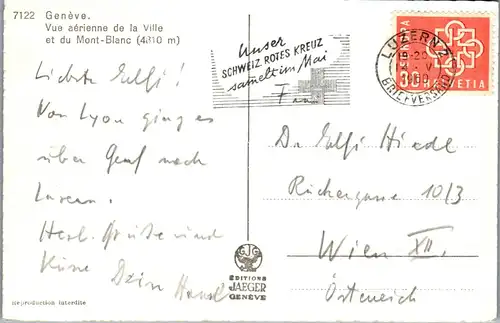 7122 Genève.
Vue aérienne de la Ville
et du Mont-Blanc (4810 m)
Liebste Elfi!
Von Lyon ging es
über Genf nach
Luzern.
Herl. Grüße und
Küsse Dein Hansl
Reproduction interdite
EDITIONS
JAEGER
GENÈVE
Unser
SCHWEIZ ROTES KREUZ
sammelt im Mai
LUZERN 2
1960
BRIEFVERSAND
HELVETIA
HELVETIA
30
Elfi Hiedl
10/3
Wien XII.
Österreich